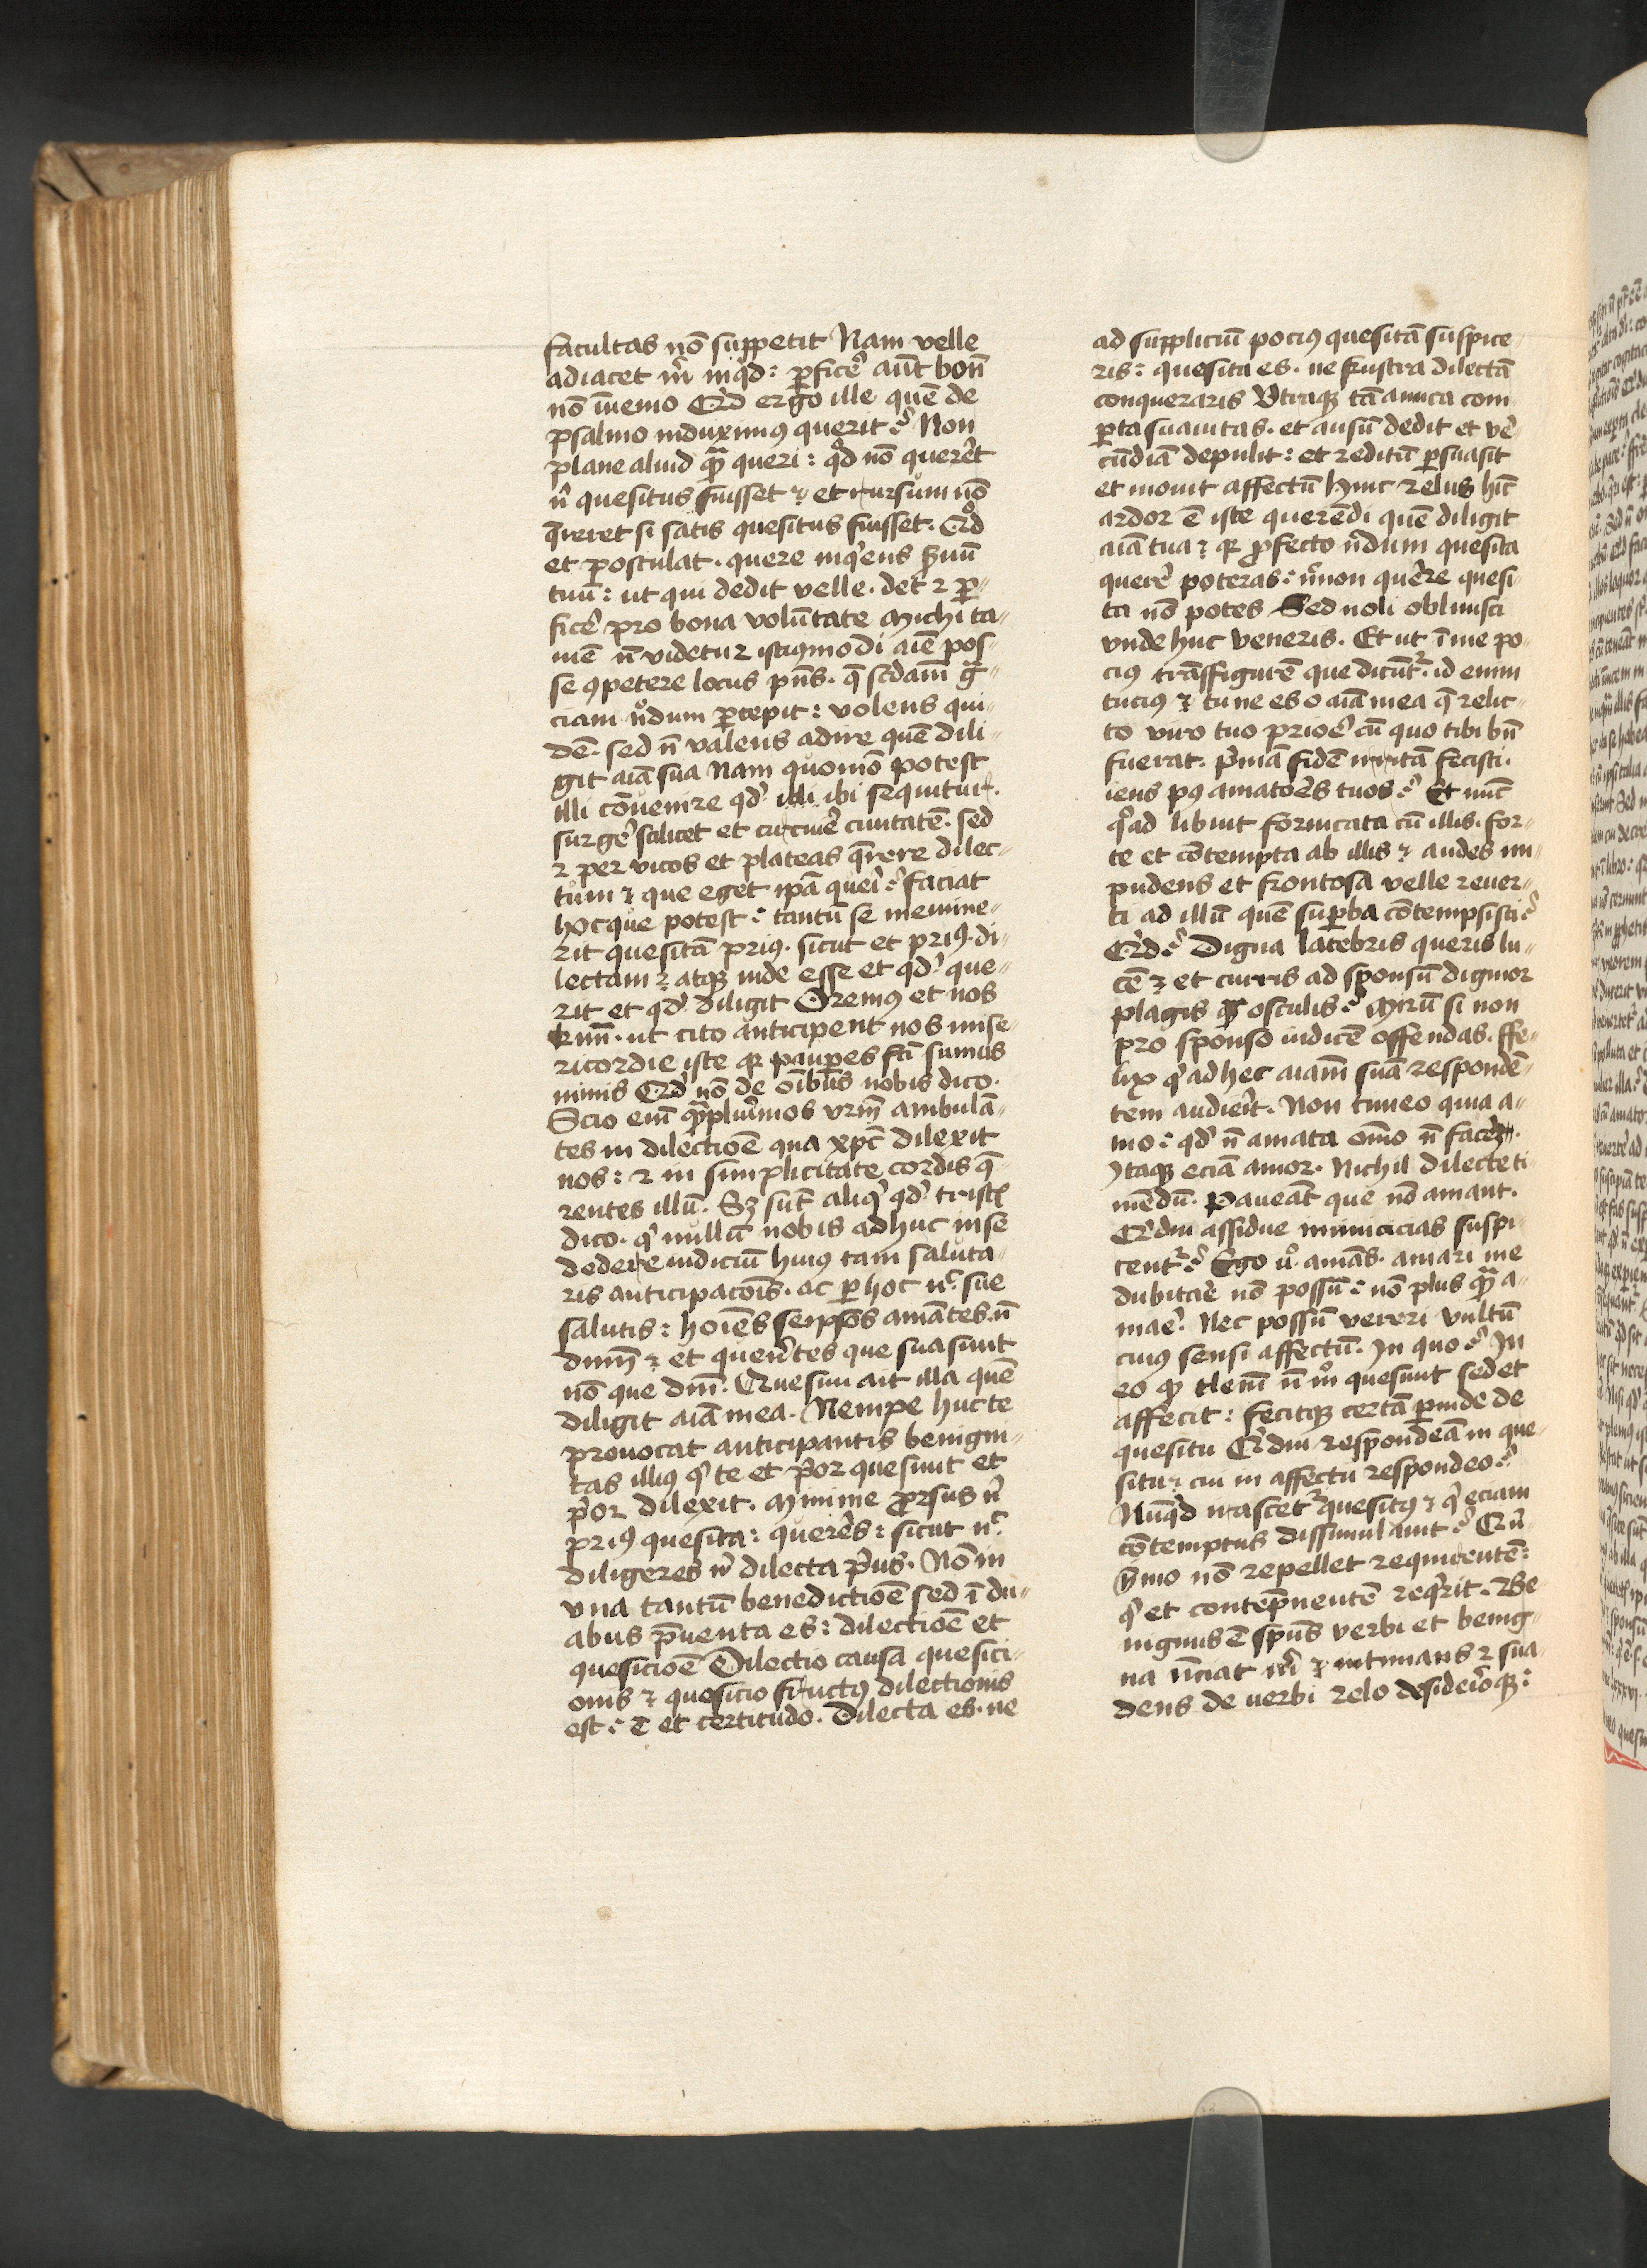 facultas nō suppetit Nam velle
adiacet m̄ inq̇d: ꝑficẽ aūt bonū
nō īuenio Qͥd ergo ille quē de
psalmo induximꝰ querit? Non
plane aliud qᷓ queri: qd̄ nō querēt
n̄ quesitus fuisset & et rursum nō
q̄reret si satis quesitus fuisset. Qͥd
et postulat. quere inqͥens ẜuū
tuū: ut qui dedit velle. det ⁊ ꝑ-
ficẽ pro bona voluntate Michi ta-
mē n̄ videtur istiꝰmodi aīe pos-
se ꝯpetere locus pn̄s. q̄ scd̄am gᷓ-
ciam nͦdum ꝑcepit: volens qui-
dē. sed n̄ valens adire quē dili-
git aīa sua Nam quomō potest
illi cōuenire qd̓ illi ibi sequitur.
surgẽ scilicet et circuiẽ ciuitatē. sed
⁊ per vicos et plateas q̄rere dilec-
tum & que eget ip̄a queri? faciat
hocque potest? tantū se memine-
rit quesitā priꝰ. sicut et priꝰ. di-
lectam & atqꝫ inde esse et qd̓ que-
rit et qd̓ diligit Oremꝰ et nos
krmī. ut cito anticipent nos mise-
ricordie iste qꝛ pauꝑes fc̄i sumus
nimis Qd̓ nō de oībus nobis dico.
Scio enī qᷓplurimos vrm̄ ambulā-
tes in dilectiōe qua xpc̄ dilexit
nos: ⁊ in simplicitate cordis q̄-
rentes illū. Sꝫ sūt aliqͥ qd̓ tristꝭ
dico. qͥ nullū nobis adhuc in se
dedere indiciū huiꝰ tam saluta-
ris anticipacōis. ac ꝑ hoc nᶜ sue
salutis: hoīes seip̄os amātes. n̄
dnm̄ & et querētes que sua sunt
nō que dnī. Quesiui ait illa quē
diligit aīa mea. Nempe huc te
prouocat anticipantis benigni-
tas illiꝰ qͥ te et pͥor quesiuit et
pͥor dilexit. Minime ꝓrsus n̄
priꝰ quesita: querēs: sicut nᶜ
diligeres n̄ dilecta pͥus. Nō in
vna tantū benedictiōe sed ī du-
abus p̄uenta es: dilectiōe et
quesiciōe Dilectio causa quesici-
onis & quesicio fructꝰ dilectionis
est? ē et certitudo. Dilecta es. ne
ad suppliciū pociꝰ quesitā suspice-
ris: quesita es. ne frustra dilectā
conqueraris Vtraqꝫ tā amica com-
ꝑta suauitas. et ausū dedit et vē-
cūdiā depulit: et reditū ꝑsuasit
et mouit affectū Hinc zelus hīc
ardor ē iste querēdi quē diligit
aīa tua & qꝛ ꝓfecto n̄dum quesita
querẽ poteras? n̄non quẽre quesi-
ta nō potes Sed noli obliuisci
vnde huc veneris. Et ut ī me po-
ciꝰ trāsfigurē que dicūtᷣ. id enim
tuciꝰ & tu ne es o aīa mea q̄ relic-
to viro tuo prioẽ cū quo tibi bn̄
fuerat. pͥmā fidē irritā fecisti.
iens pꝰ amatoēs tuos? Et nūc
qͦad libuit fornicata cū illis. for-
te et cōtempta ab illis & audes im-
pudens et frontosa velle reuer-
ti ad illū quē suꝑba cōtempsisti?
Qͥd? Digna latebris queris lu-
cē & et curris ad sponsū dignior
plagis qᷓ osculis? Mirū si non
pro sponso iudicē offendas. ffe-
lix qͥ ad hec aīam suā respondē-
tem audierit. Non timeo quia a-
mo? qd̓ n̄ amata om̄o n̄ facerē.
Itaqꝫ eciā amor. Nichil dilecte ti-
mēdū. Paueāt que nō amant.
Qͥdni assidue inimicicias suspi-
centᷣ? Ego v̓o amās. amari me
dubitare nō possū? nō plus qᷓ a-
maẽ. Nec possū vereri vultū
cuiꝰ sensi affectū. In quo? In
eo qͥ tlem̄ n̄ mͦ quesiuit sed et
affecit: fecitqꝫ certā ꝑinde de
quesitu Qͥdni respondeā in que-
situ & cui in affectu respondeo?
Nūqd̓ irascetᷣ quesitꝰ & qͥ eciam
cōtemptus dissimulauit? Qn̄-
ymo nō repellet requirentē:
qͥ et contēpnentē reqͥrit. Be-
nignus ē sp̄us verbi et benig-
na nūciat m̄ & intimans ⁊ sua-
dens de uerbi zelo desideriōqꝫ: